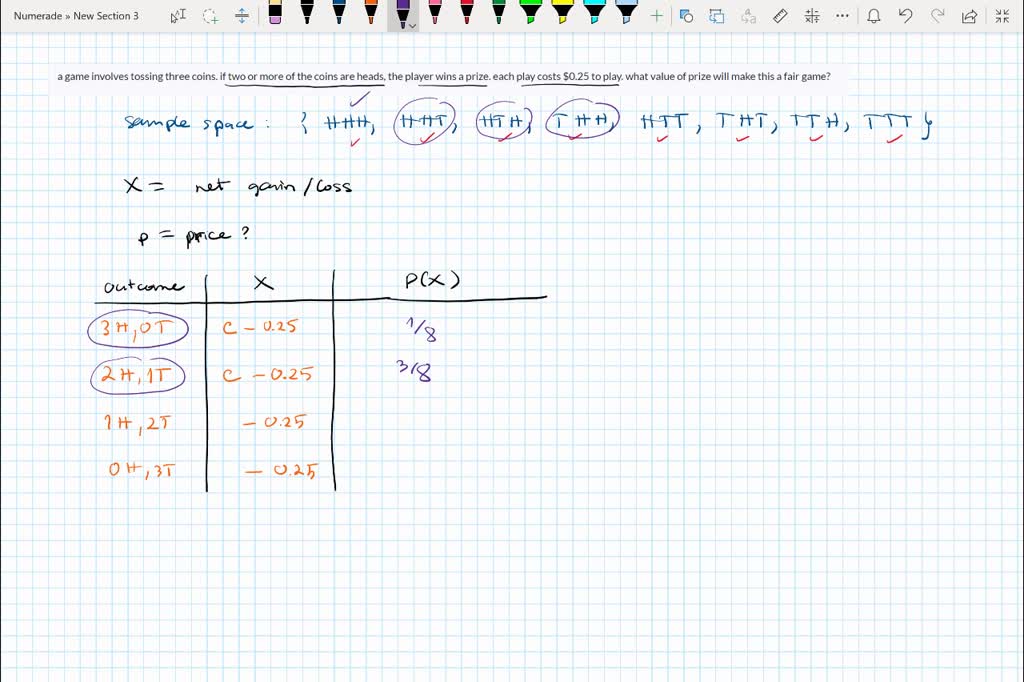 Numerade » New Section 3
a game involves tossing three coins. if two or more of the coins are heads, the player wins a prize. each play costs $0.25 to play. what value of prize will make this a fair game?
sample space : { HHH, HHT, HTH, THH, HTT, THT, TTH, TTT }
X = net gain/loss
p = price ?
outcome X P(X)
3H,0T C - 0.25 1/8
2H,1T C - 0.25 3/8
1H,2T - 0.25
0H,3T - 0.25